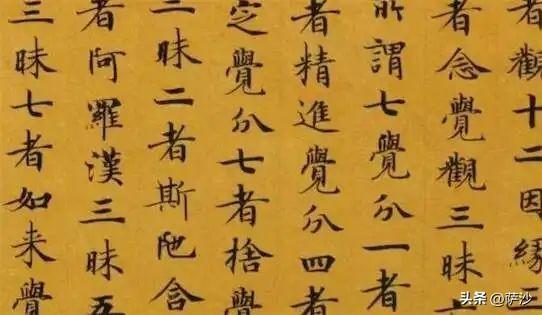 者觀十二因緣三
者念覺觀三昧
所謂七覺分一者
者精進覺分四者
定覺分七者捨覺
三昧二者斯陀含
者阿羅漢三昧五
三昧七者如来覺
头条 @萨沙